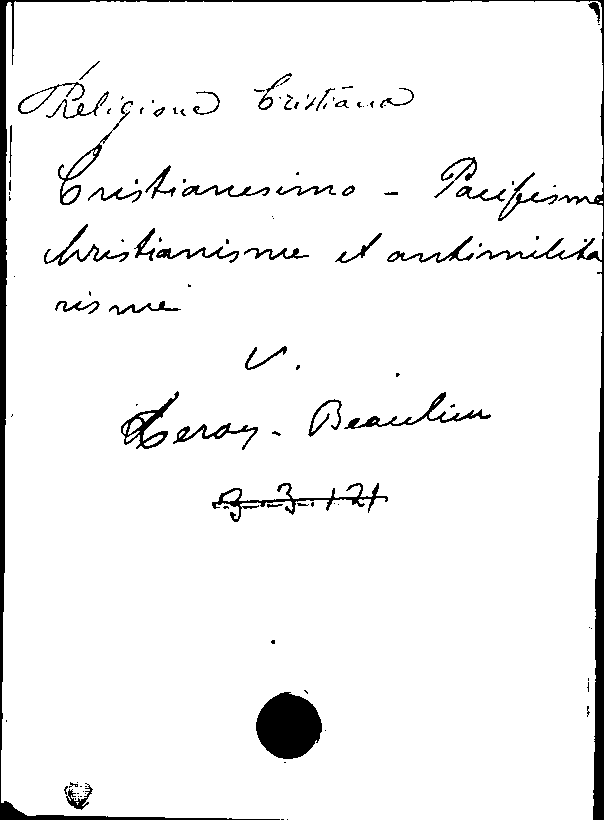 Religione Cristiana
Cristianesimo - Pacifisme
Christianisme et antimilita
risme
V.
Leroy - Beaulieu
3.3.121